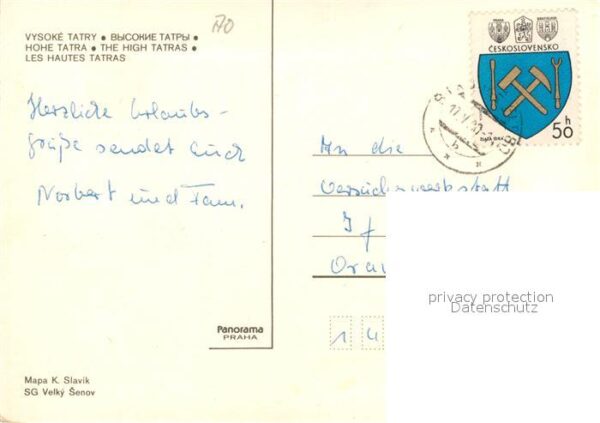 VYSOKÉ TATRY • ВЫСОКИЕ ТАТРЫ •
HOHE TATRA • THE HIGH TATRAS •
LES HAUTES TATRAS
ČESKOSLOVENSKO
50 h
Herzliche Urlaubs-
grüße sendet Euch
Norbert und Fam.
An die
privacy protection
Datenschutz
1 4
Panorama
PRAHA
Mapa K. Slavík
SG Velký Šenov